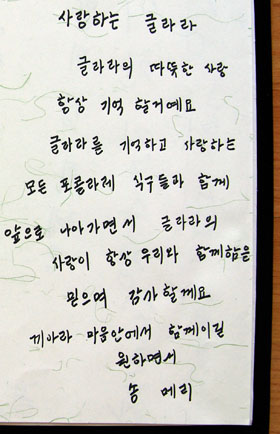 사랑하는 글라라
글라라의 따뜻한 사랑
항상 기억 할거예요
글라라를 기억하고 사랑하는
모든 포콜라레 식구들과 함께
앞으로 나아가면서 글라라의
사랑이 항상 우리와 함께함을
믿으며 감사할께요
끼아라 마음안에서 함께이길
원하면서
송 메리